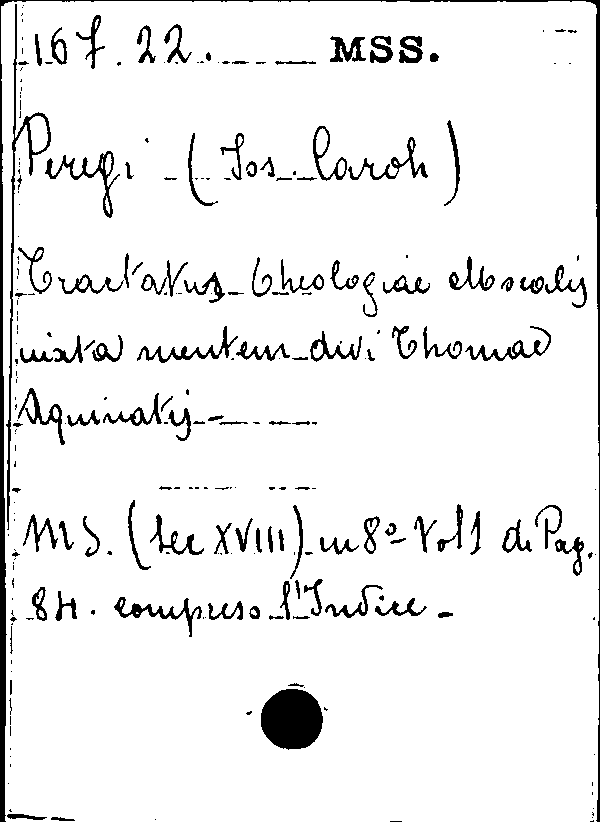 167.22. MSS.
Peregi (Jos. Caroli)
Tractatus Theologiae Moralis
iuxta mentem divi Thomae
Aquinatis -
MS. (Sec XVIII) in 8º Vol 1 di Pag.
84. compreso l'Indice -